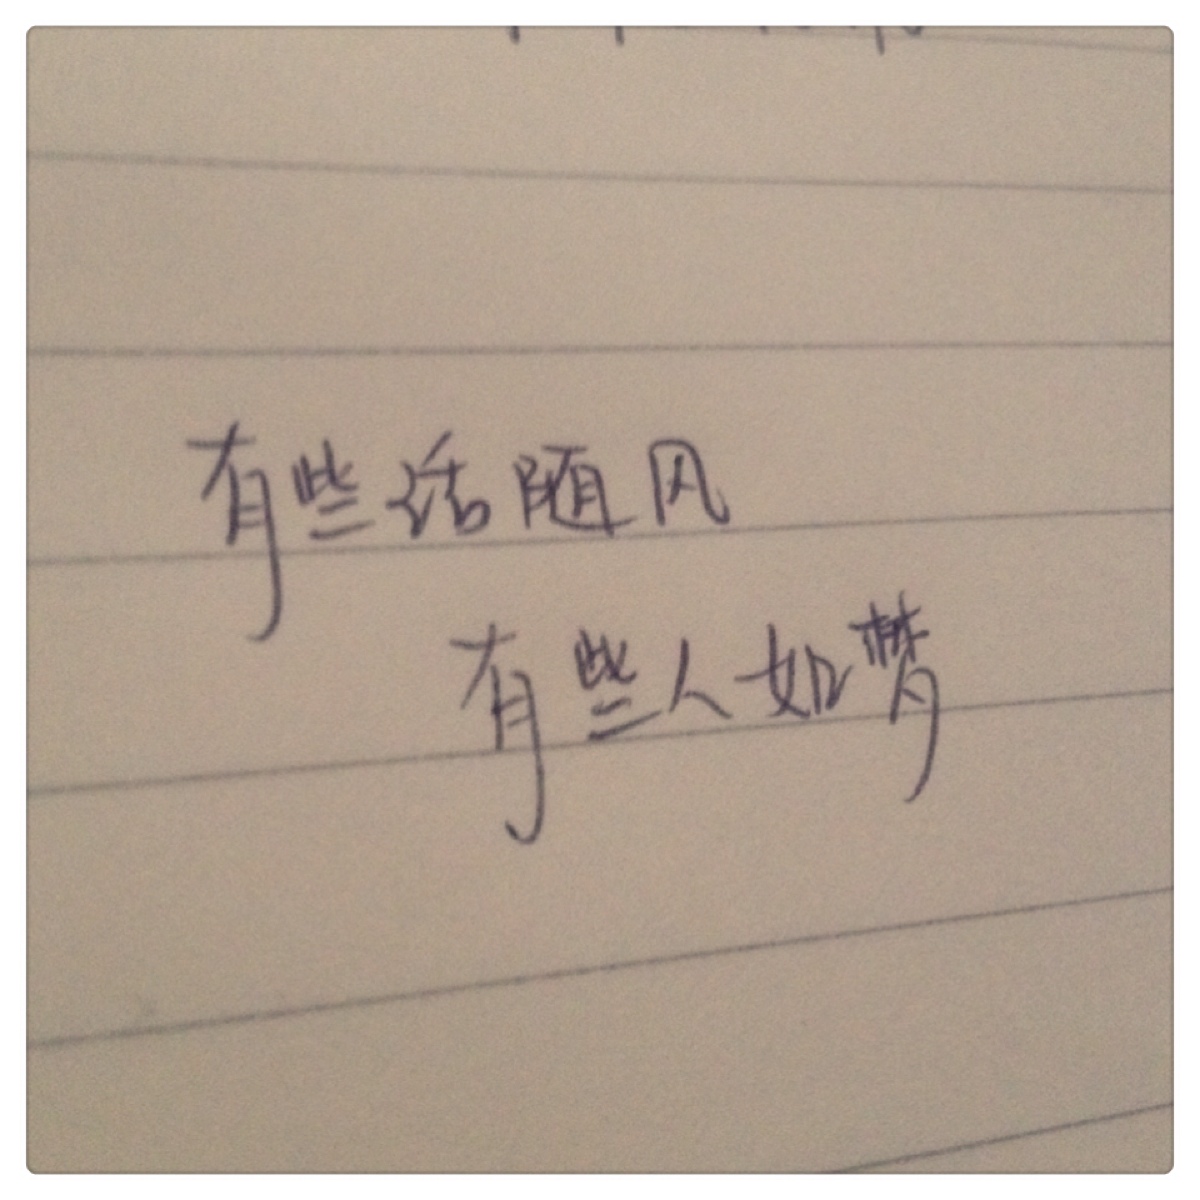 有些话随风
有些人如梦